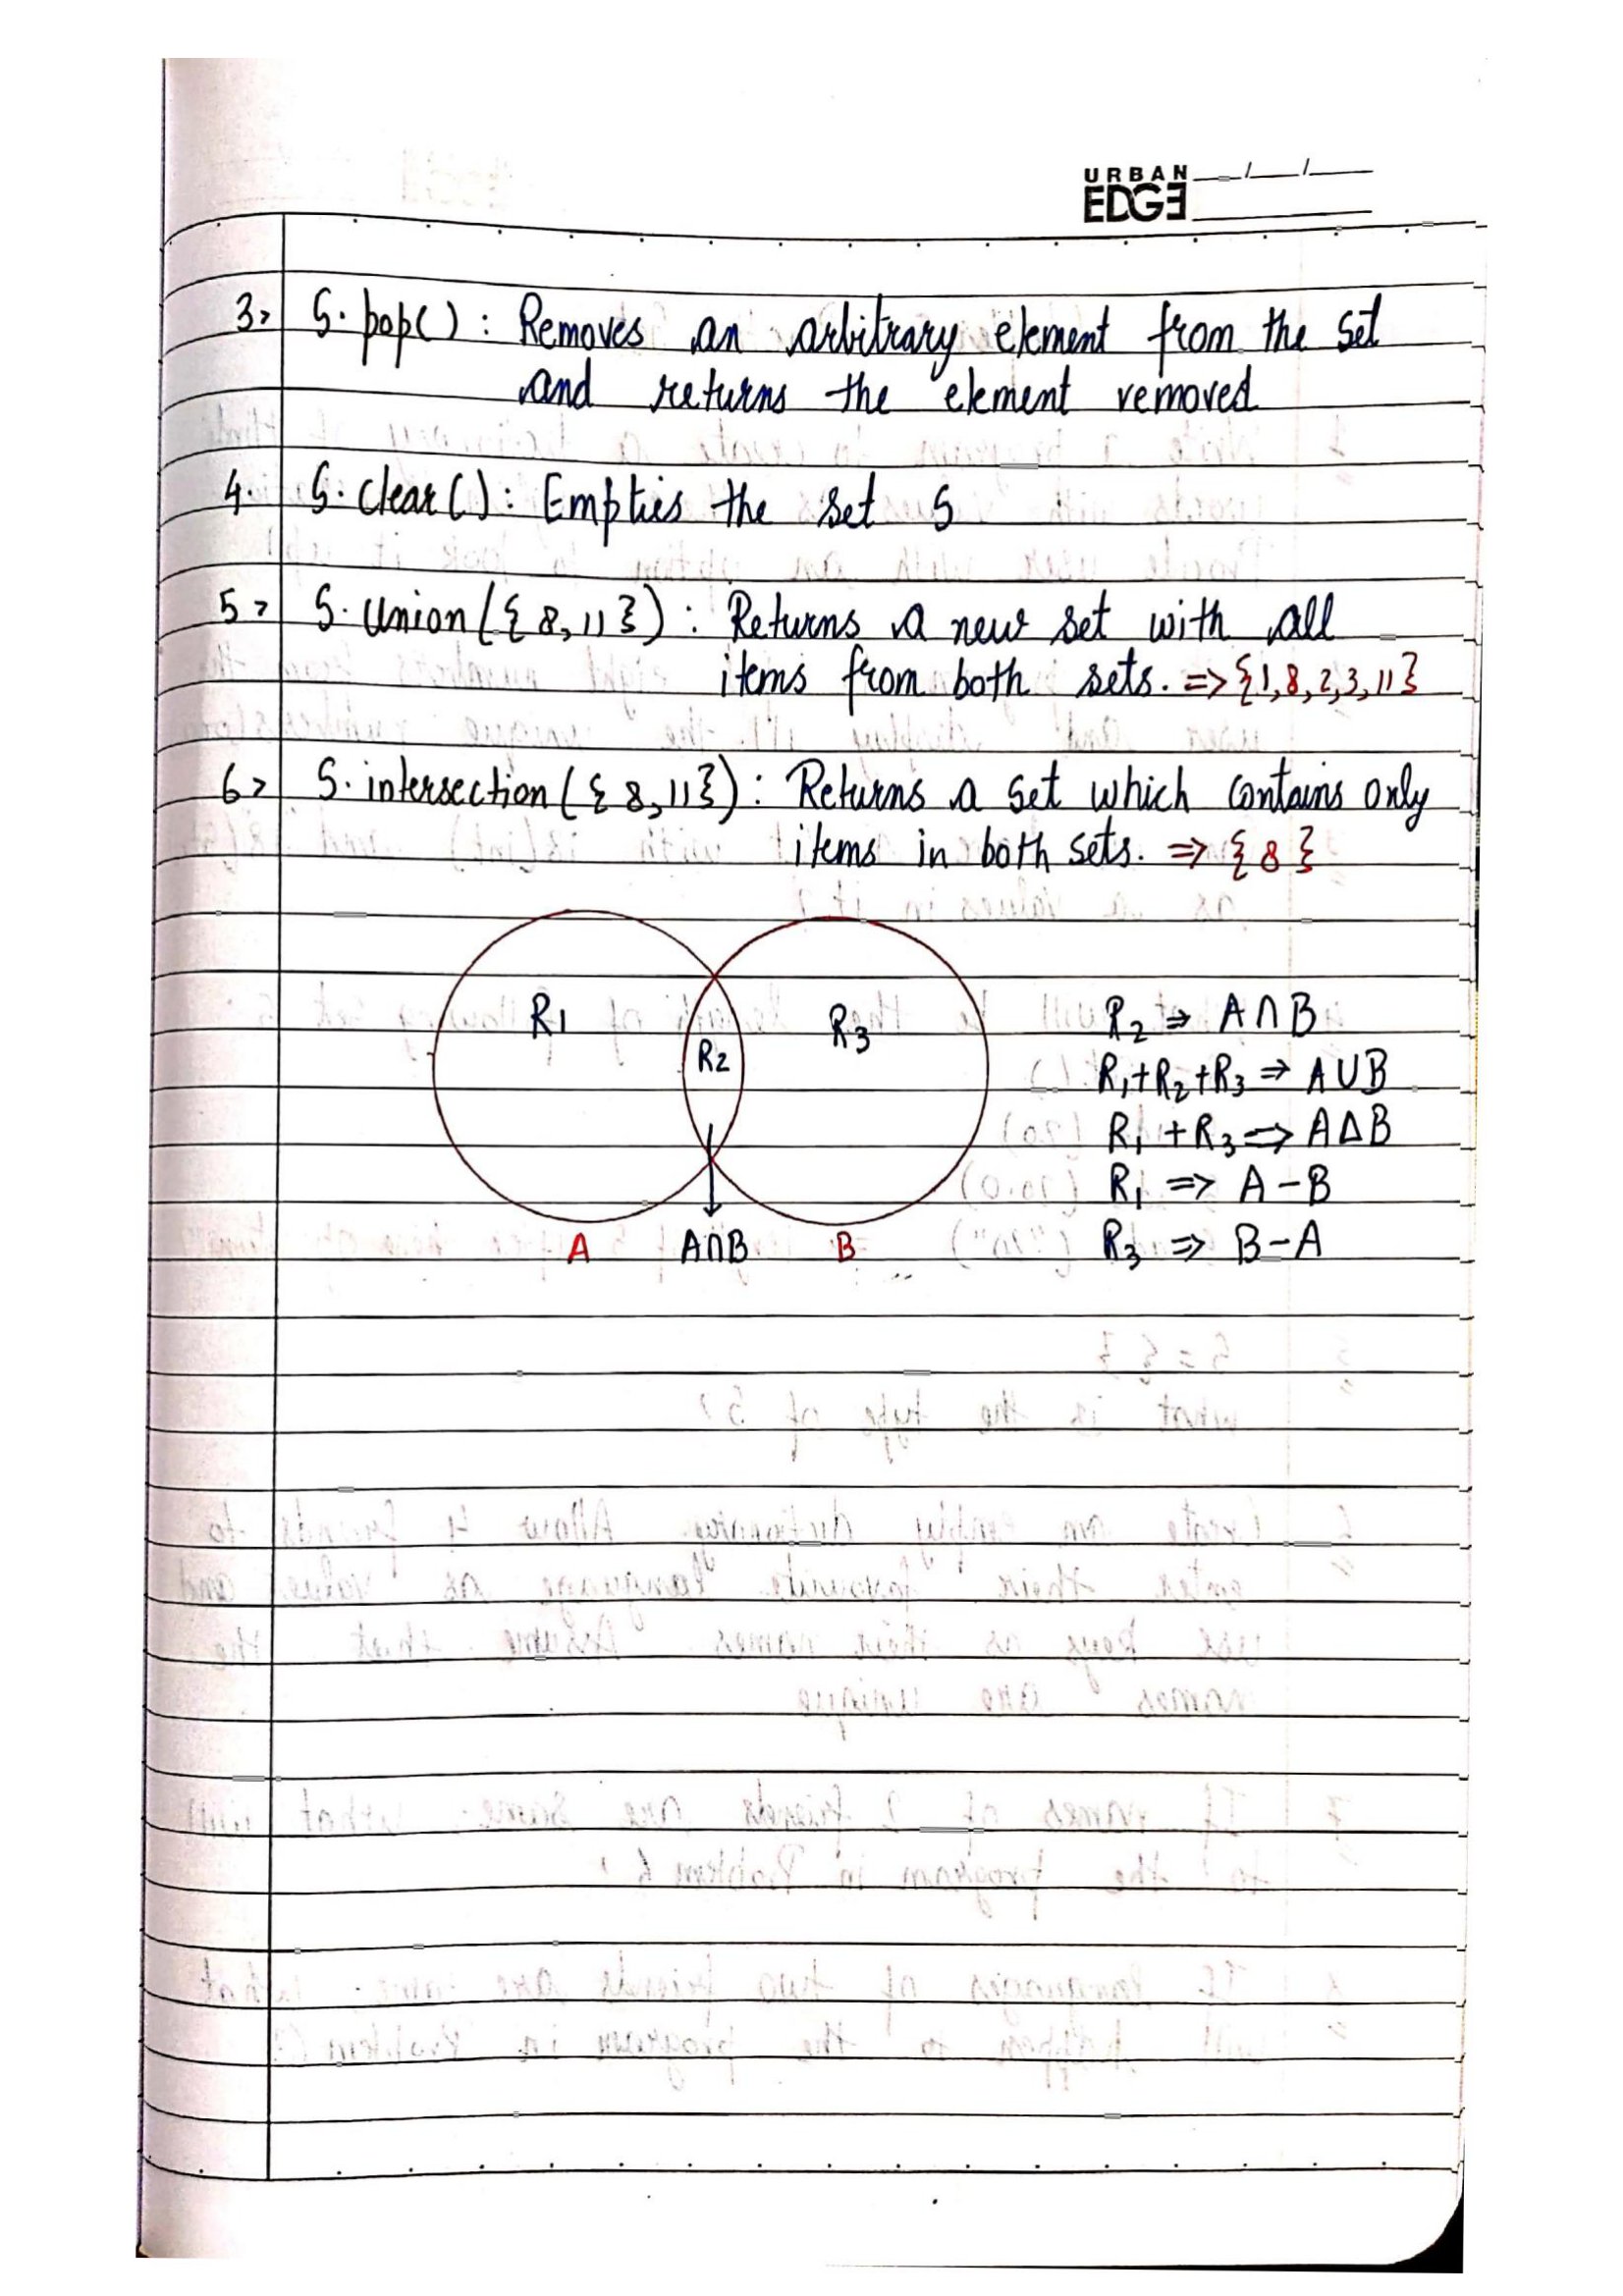 URBAN
EDGE
3> S.pop() : Removes an arbitrary element from the set
and returns the element removed
4. S.clear() : Empties the set S
5> S.Union({8,11}) : Returns a new set with all
items from both sets. => {1,8,2,3,11}
6> S.intersection({8,11}) : Returns a set which contains only
items in both sets. => {8}
R1 R2 R3
R2 => A∩B
R1+R2+R3 => A∪B
R1+R3 => AΔB
R1 => A-B
R3 => B-A
A A∩B B